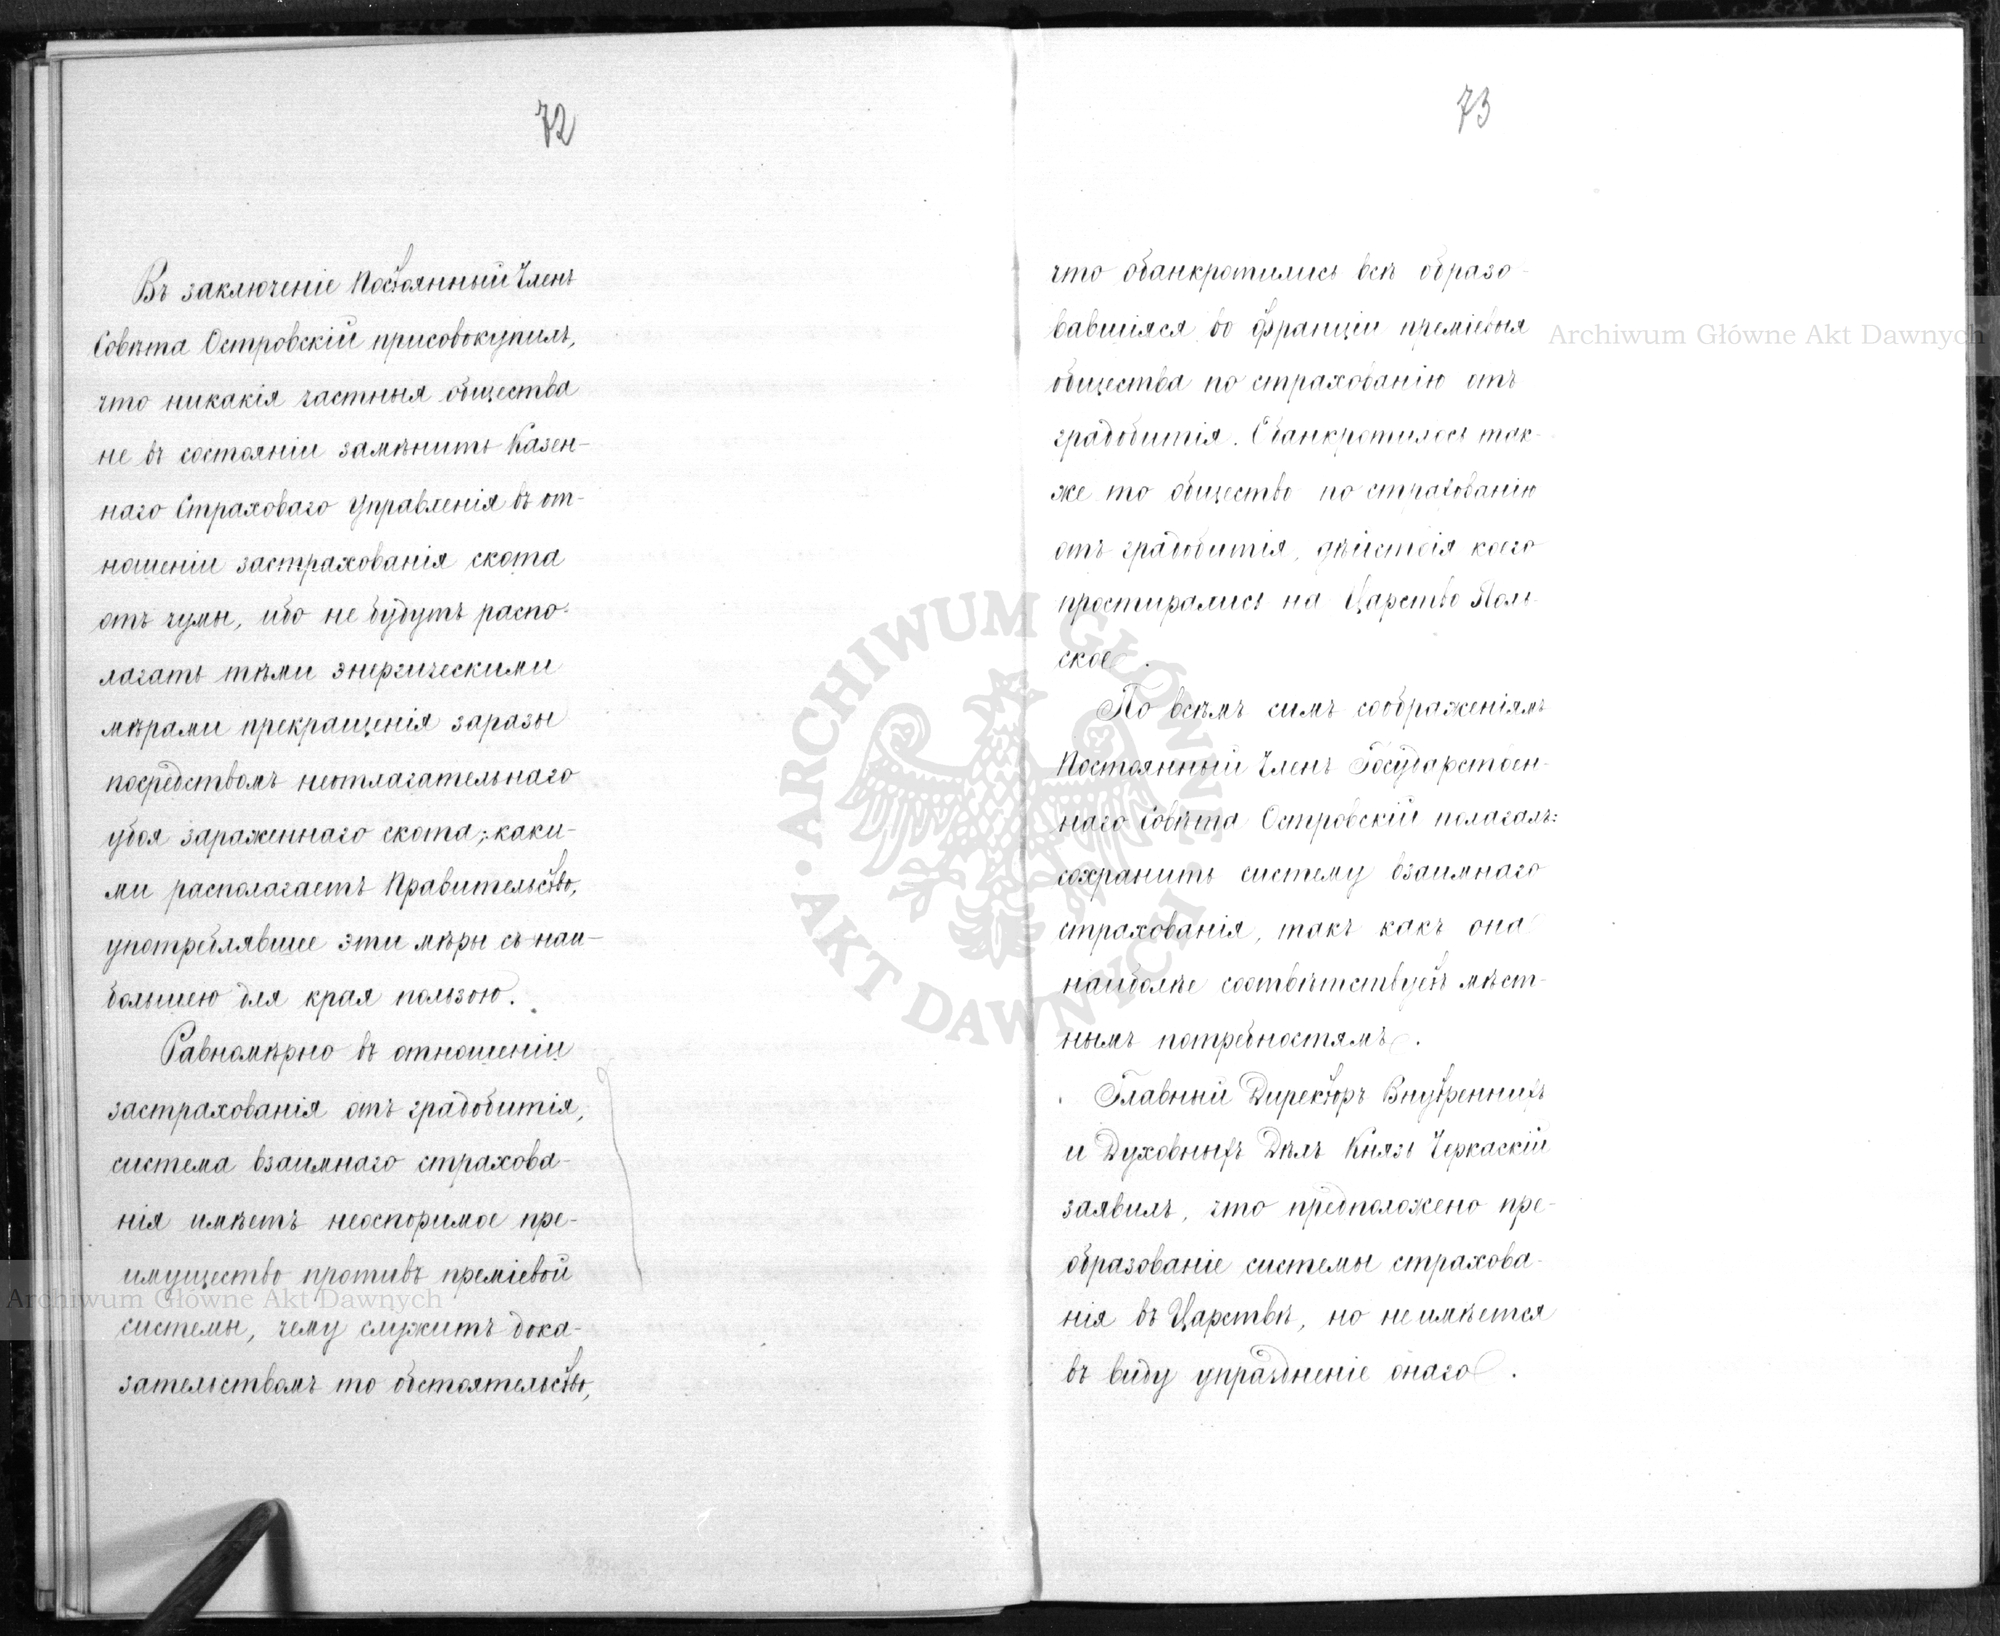 72
Въ заключеніе Постоянный Членъ
Совѣта Островскій присовокупилъ,
что никакія частныя общества
не въ состояніи замѣнить Казен-
наго Страховаго Управленія въ от-
ношеніи застрахованія скота
отъ чумы, ибо не будутъ распо-
лагать тѣми энергическими
мѣрами прекращенія заразы
посредствомъ неотлагательнаго
убоя зараженнаго скота, каки-
ми располагаетъ Правительство,
употреблявшее эти мѣры съ наи-
большею для края пользою.
Равномѣрно въ отношеніи
застрахованія отъ градобитія,
система взаимнаго страхова-
нія имѣетъ неоспоримое пре-
имущество противъ преміевой
системы, чему служитъ дока-
зательствомъ то обстоятельство,
73
что обанкротились всѣ образо-
вавшіяся во Франціи преміевыя
общества по страхованію отъ
градобитія. Обанкротилось так-
же то общество по страхованію
отъ градобитія, дѣйствія коего
простирались на Царство Поль-
ское.
По всѣмъ симъ соображеніямъ
Постоянный Членъ Государствен-
наго Совѣта Островскій полагалъ:
сохранить систему взаимнаго
страхованія, такъ какъ она
наиболѣе соотвѣтствуетъ мѣст-
нымъ потребностямъ.
Главный Директоръ Внутреннихъ
и Духовныхъ Дѣлъ Князь Черкаскій
заявилъ, что предположено пре-
образованіе системы страхова-
нія въ Царствѣ, но не имѣется
въ виду упраздненіе онаго.
Archiwum Główne Akt Dawnych
Archiwum Główne Akt Dawnych
ARCHIWUM GŁÓWNE
AKT DAWNYCH